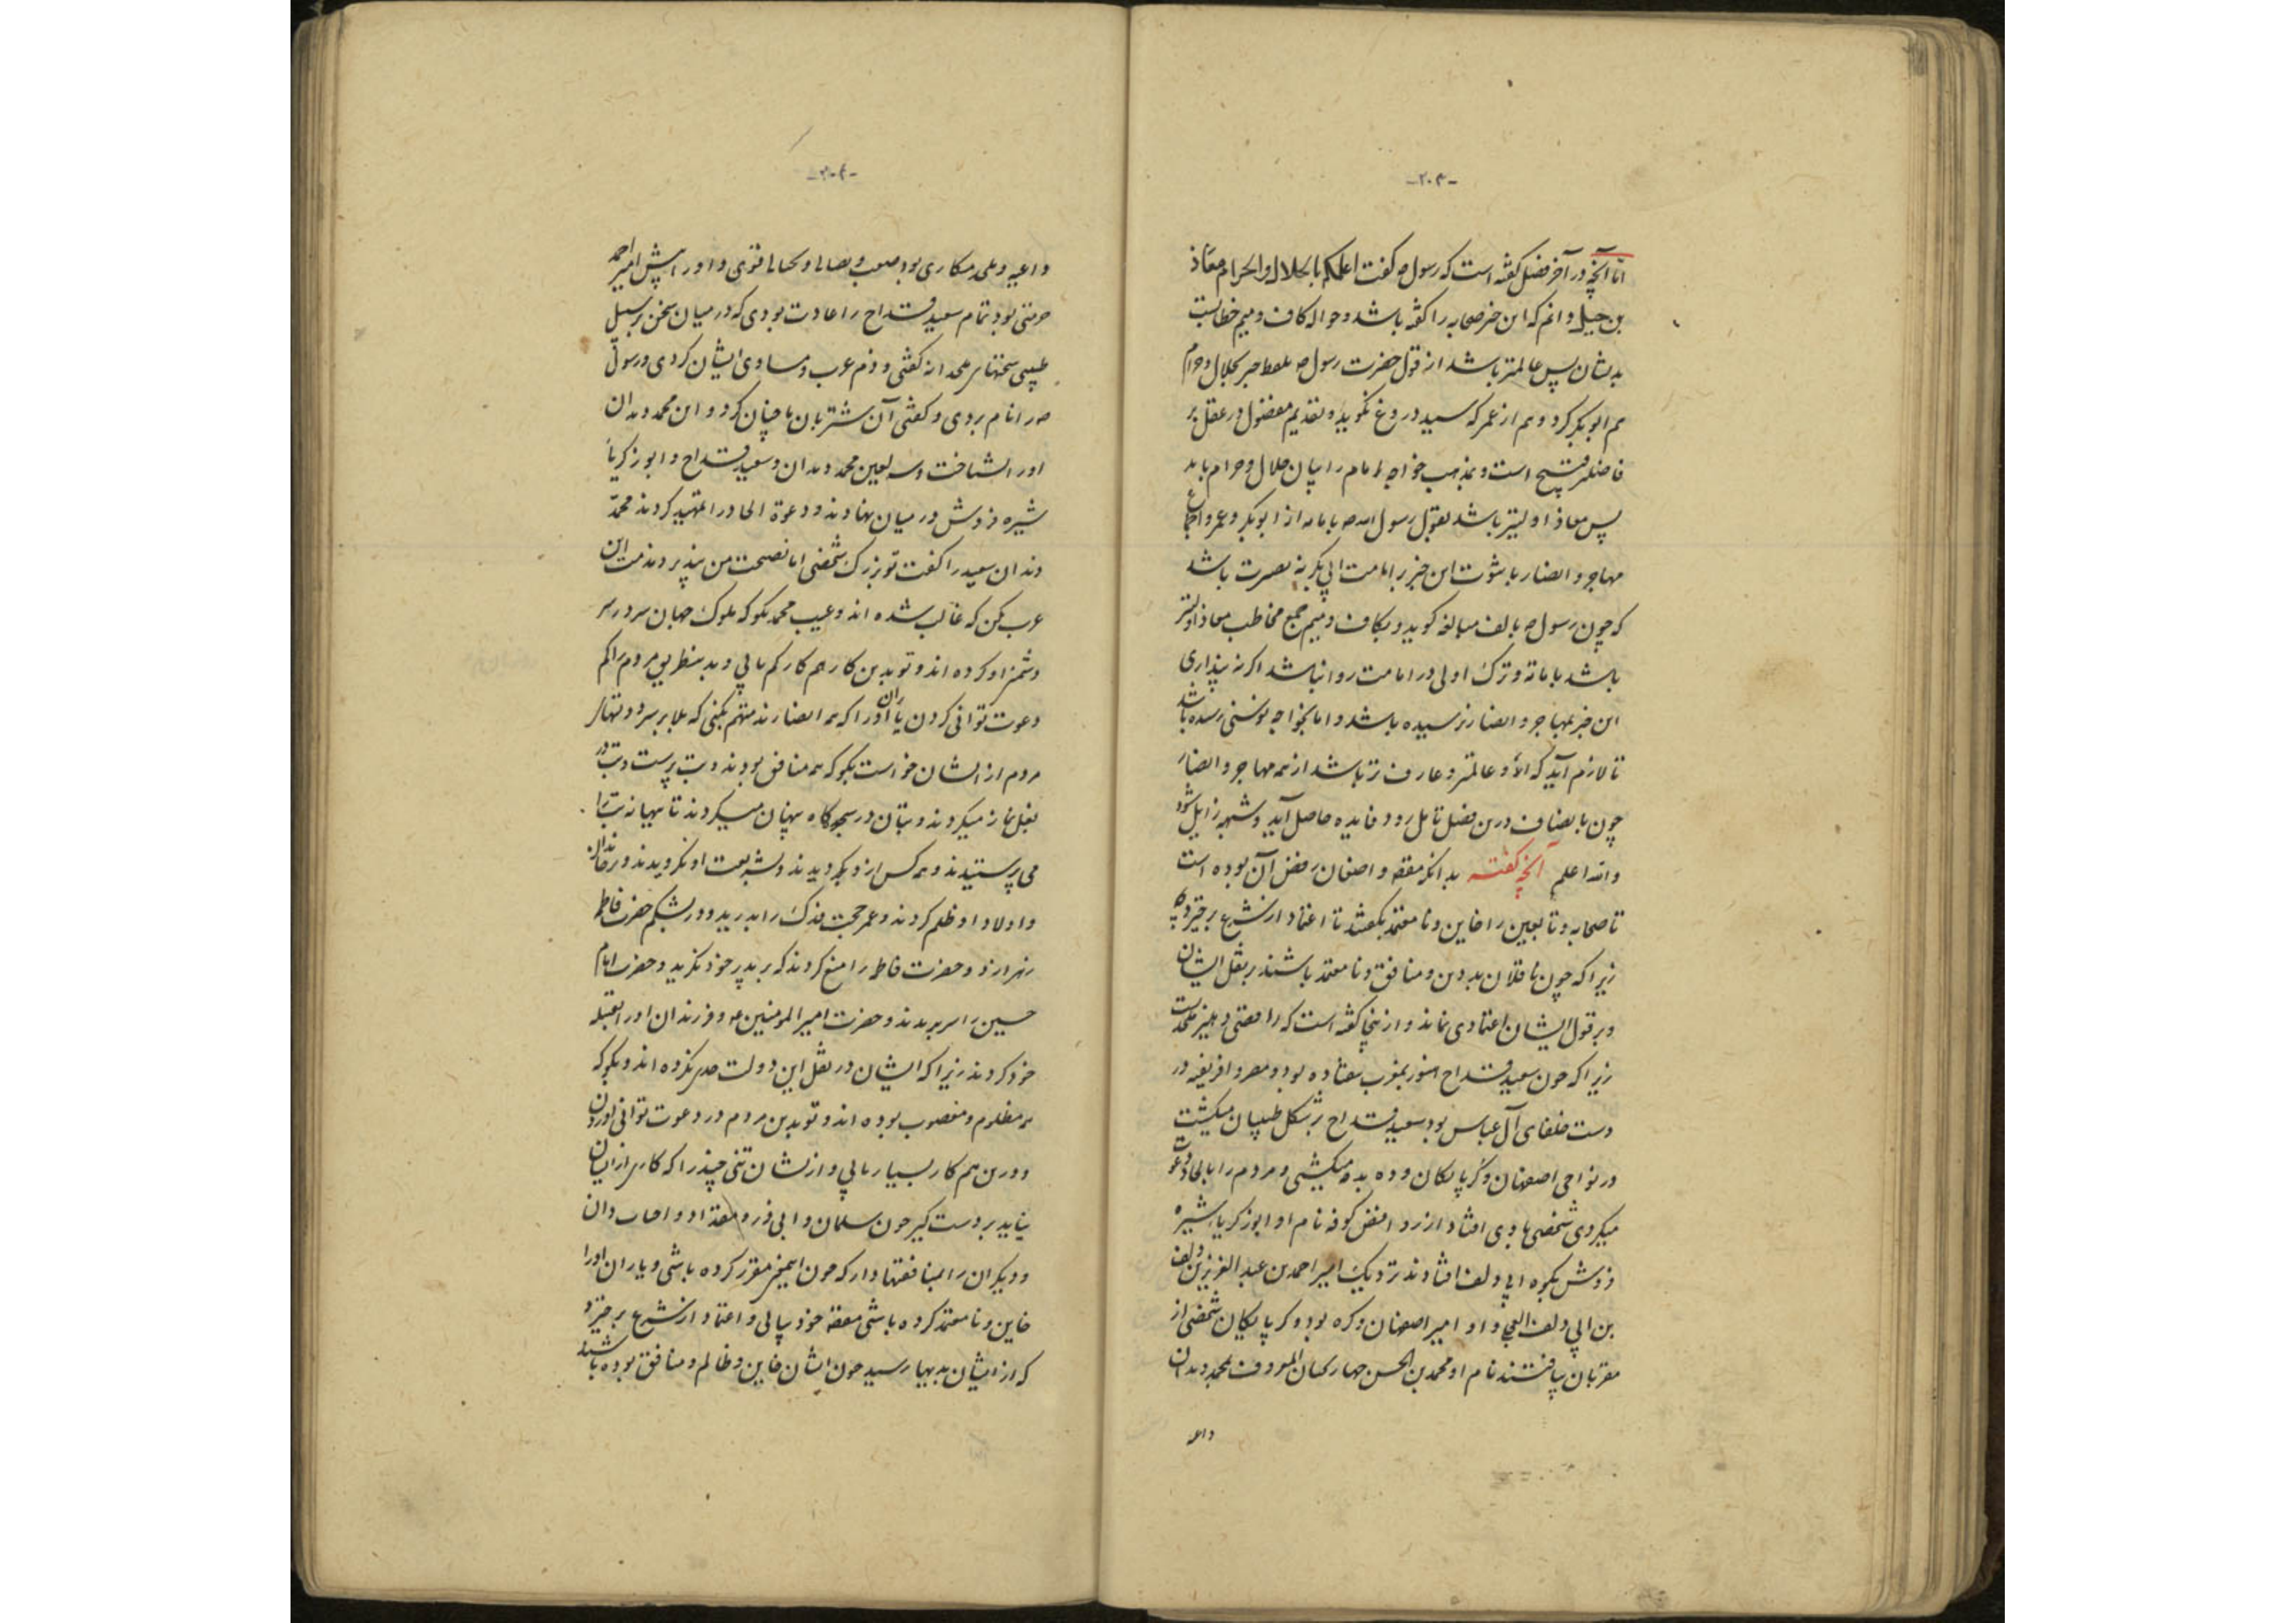 -۲۰۳-
اما آنچه در آخر فصل گفته است که رسول ص گفت اعلمکم بالحلال والحرام معاذ
بن جبل دانم که این خبر صحابه را گفته باشد و حواله کاف و میم خطابست
بدیشان پس عالمتر باشد از قول حضرت رسول ص بحلال و حرام
هم ابوبکر کرد و هم از عمر که سید دروغ نگوید و تقدیم مفضول در عقل بر
فاضلتر قبیح است و بمذهب خواجه امام را بیان حلال و حرام باید
پس معاذ اولیتر باشد بقول رسول الله ص بامامه از ابوبکر و عمر و اجماع
مهاجر و انصار با ثبوت این خبر بر امامت ابی بکر نه نصرت باشد
که چون رسول ص بالف مبالغه گوید و بکاف و میم جمع مخاطب معاذ اولیتر
باشد بامامة و ترک اولی در امامت روا نباشد اگر نه پنداری
این خبر بمهاجر و انصار نرسیده باشد و اما بخواجه نوسنی رسیده باشد
تا لازم آید که او عالمتر و عارف تر باشد از همه مهاجر و انصار
چون بانصاف درین فصل تامل رود فایده حاصل آید و شبهه زایل شود
والله اعلم آنچه گفته بدانکه مقصود واضعان رفض آن بوده است
تا صحابه و تابعین را خاین و نا معتمد بگفتند تا اعتماد از شرع برخیزد چه
زیرا که چون ناقلان بد دین و منافق و نا معتمد باشند بر نقل ایشان
و بر قول ایشان اعتمادی نماند و ازینجا گفته است که رافضی دهلیز ملحدیست
زیرا که چون سعید قداح هنوز بمغرب نیفتاده بود و مصر و افریقیه در
دست خلفای آل عباس بود سعید قداح بر شکل طبیبان میگشت
در نواحی اصفهان و گرپایگان و ده بده میگشتی و مردم را بالحاد دعوت
میکردی شخصی با وی افتاد از روافض کوفه نام او ابو زکریا شیره
فروش بکوه ابی دلف افتادند نزدیک امیر احمد بن عبد العزیز بن دلف
بن ابی دلف العجلی و او امیر اصفهان و کره بود و کرپایگان شخصی از
مقربان بیافتند نام او محمد بن الحسن جهار لختان المعروف بمحمد دندان
داعیه
-۲۰۴-
داعیه و علی مکاری بود صعب و بصالی و محتالی قوی و او را پیش امیر احمد
حرمتی بود تمام سعید قداح را عادت بودی که در میان سخن بر سبیل
طیبی سخنهای ملحدانه گفتی و ذم عرب و مساوی ایشان کردی و رسول
ص را نام بردی و گفتی آن شتربان با چنان کرد و این محمد دندان
او را بشناخت و سه لعین محمد دندان و سعید قداح و ابو زکریا
شیره فروش در میان نهادند و دعوة الحاد را تمهید کردند محمد
دندان سعید را گفت تو بزرگ شخصی اما نصیحت من بپذیر و مذمت این
عرب مکن که غالب شده اند و عیب محمد مگو که ملوک جهان سر در سر
دشمنی او کرده اند و تو بدین کار هم کار کم یابی و بدینطریق مردم را کم
دعوت توانی کردن یاران او را که همه انصارند متهم بکنی که بلا بر سر دو تنهاء
مردم از ایشان خواست بگو که همه منافق بودند و بت پرست و بت در
بغل نماز میکردند و بتان در سجده گاه پنهان میکردند تا پنهان بت را
می پرستیدند و همه کس از و بگردیدند و بشریعت او نگرویدند و بر خاندان
و اولاد او ظلم کردند و عمر حجت فدک را بدرید و در بشکم حضرت فاطمه
زهرا زد و حضرت فاطمه را منع کردند که بر پدر خود نگرید و حضرت امام
حسین را سر بریدند و حضرت امیر المومنین ع و فرزندان او را بقبله
خود کردند زیرا که ایشان در نقل این دولت صبر نکرده اند و بگو که
همه مظلوم و مغصوب بوده اند و تو بدین مردم در دعوت توانی آوردن
و درین هم کار بسیار یابی و ازیشان تنی چند را که کاری از ایشان
نیاید بر دست گیر چون سلمان و ابی ذر و مقداد و اصحاب دان
و دیگران را بمنافقتها دار که چون اینچنین مقرر کرده باشی و یاران او را
خاین و نا معتمد کرده باشی مقصود خود بیابی و اعتماد از شرع برخیزد
که از ایشان بدیها رسید چون ایشان خاین و ظالم و منافق بوده باشند